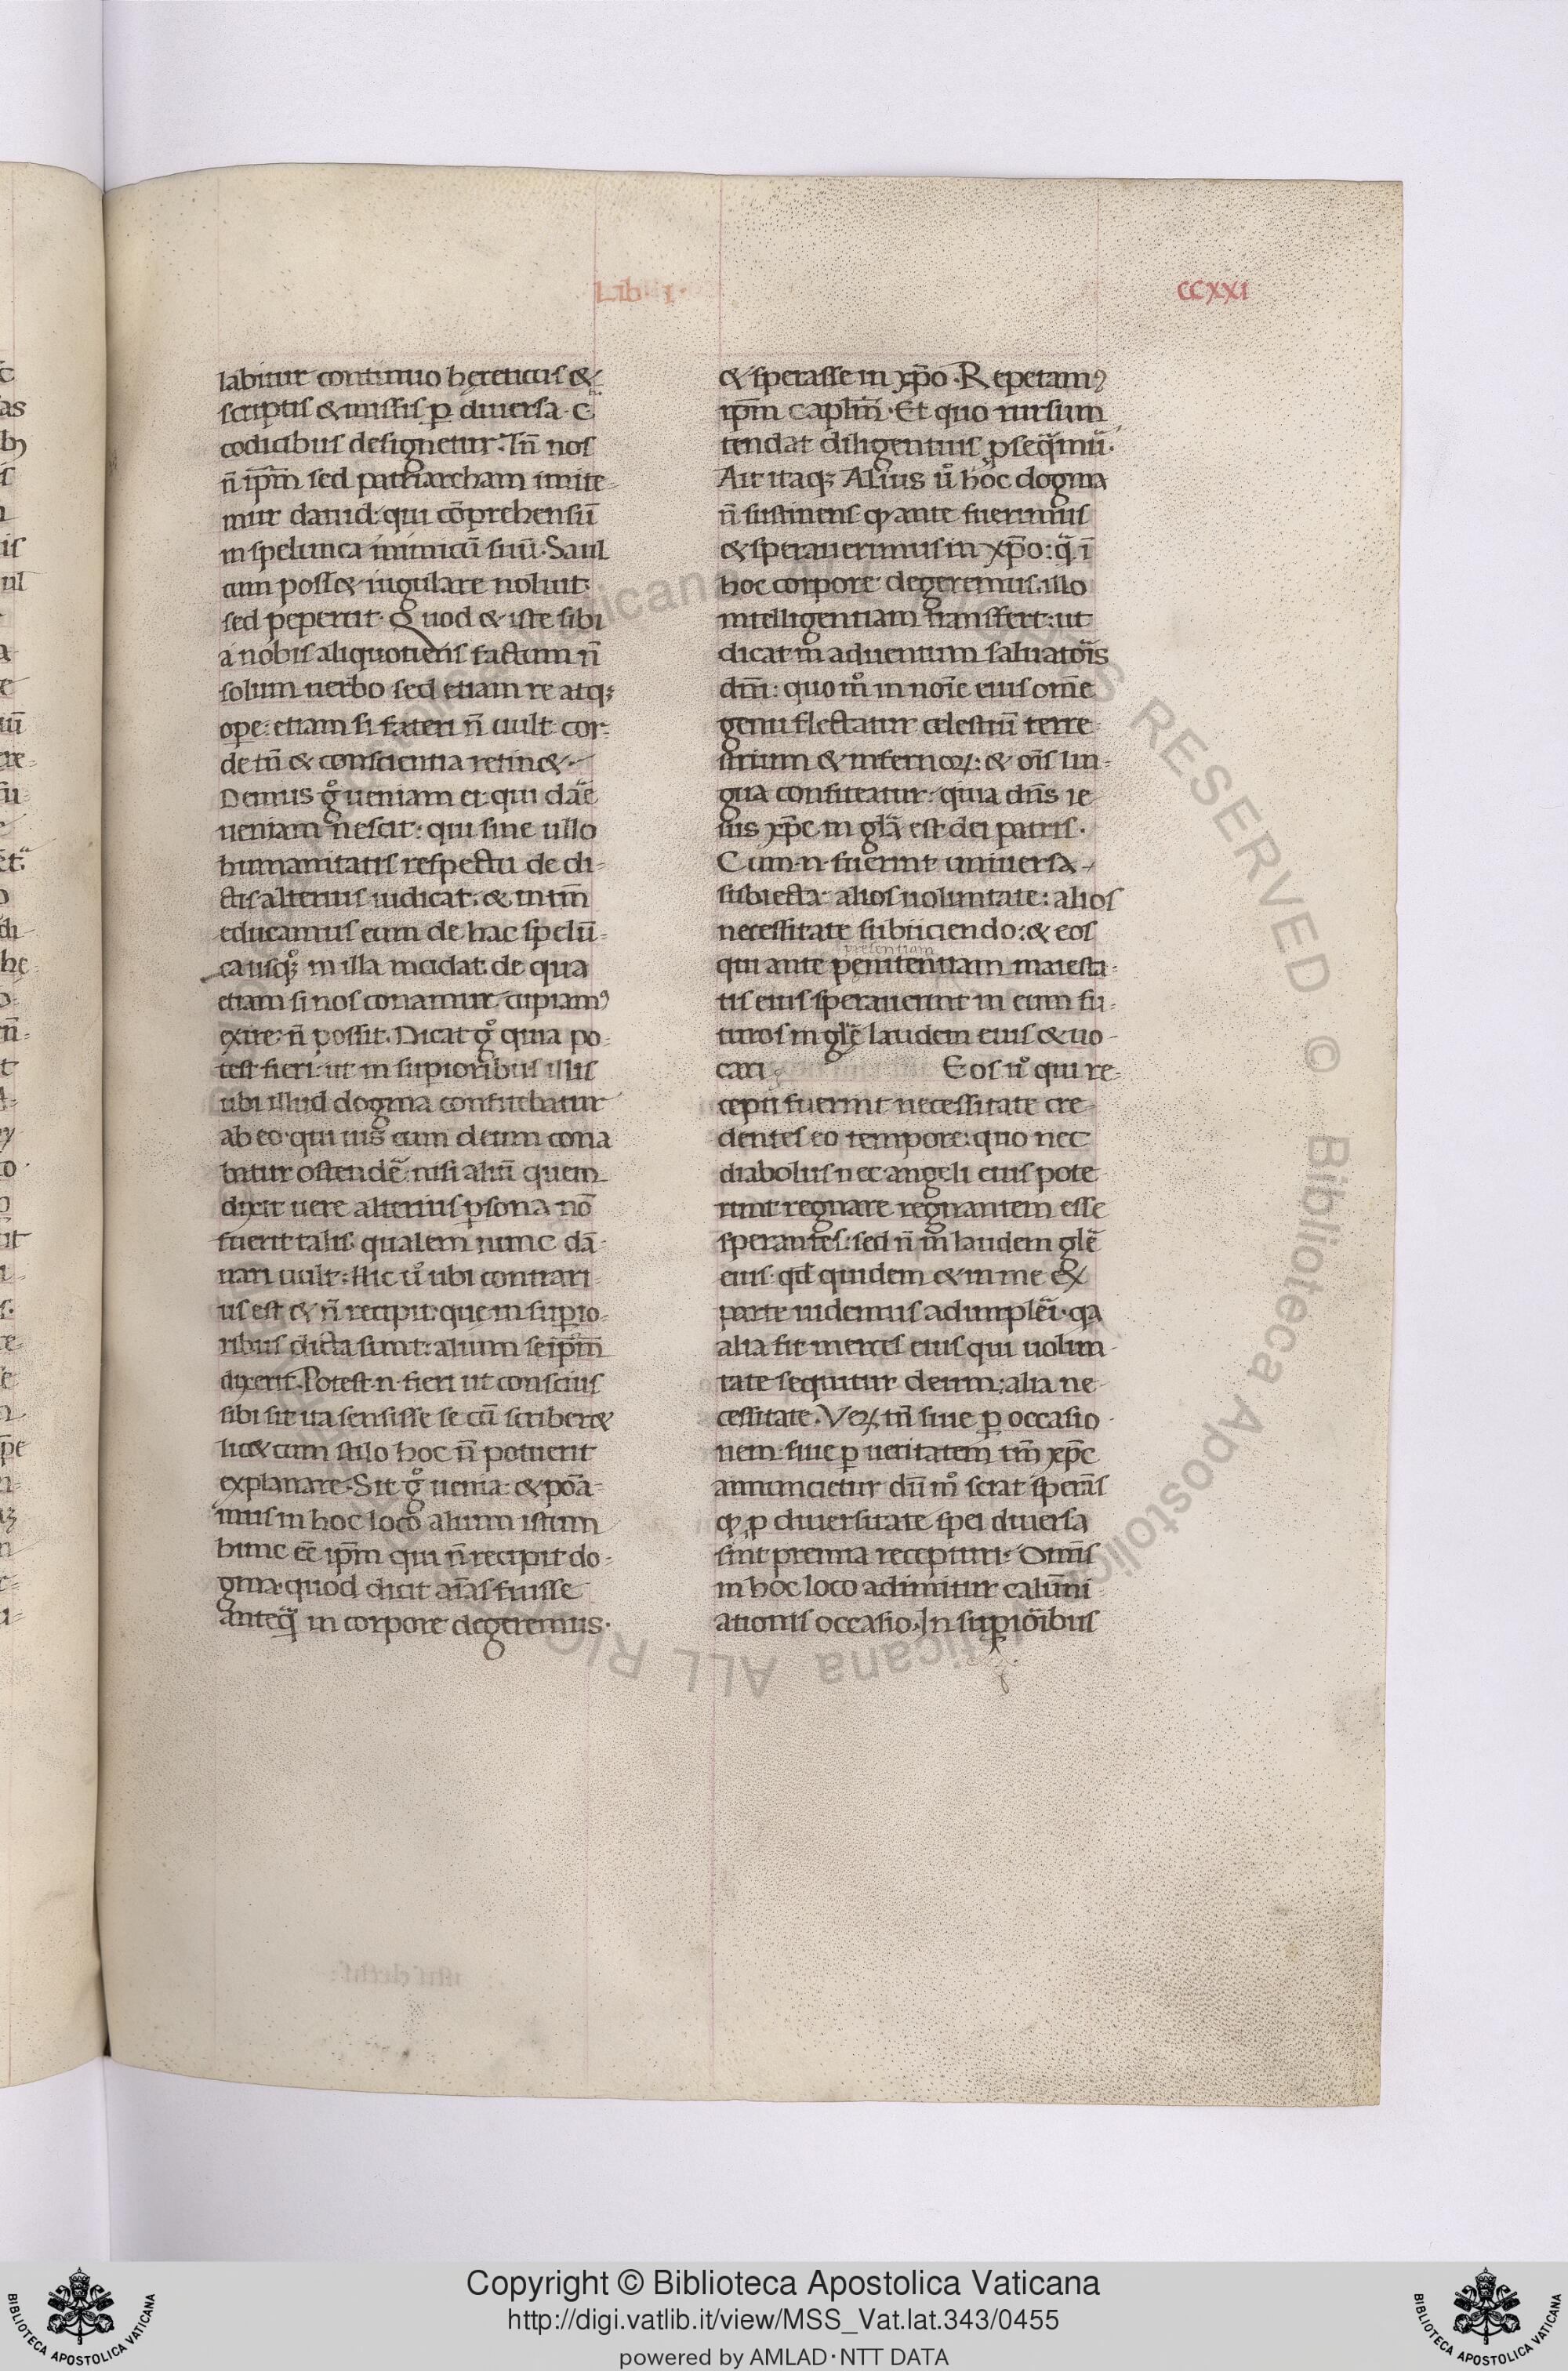 Lib I
CCXXI
labitur continuo hereticus &
scriptis & missis ꝑ diuersa · c
codicibus designetur. Sꝫ nos
n̄ ip̄m sed patriarcham imite-
mur dauid: qui cōprehensū
in spelunca inimicū suū. Saul
cum poss& iugulare noluit:
sed pepercit. Quod & iste sibi
a nobis aliquotiens factum n̄
solum uerbo sed etiam re atqꝫ
ope: etiam si fateri n̄ uult cor-
de tn̄ & conscientia retin&.
Demus gͦ ueniam ei: qui daē
ueniam nescit: qui sine ullo
humanitatis respectu de di-
ctis alterius iudicat: & in tm̄
educamus eum de hac spelū-
ca usqꝫ in illa incidat: de qua
etiam si nos conamur cupiamꝰ
exire: n̄ possit. Dicat gͦ quia po-
test fieri: ut in supioribus illis
ubi illud dogma confitebatur
ab eo qui ius eum deum cona
batur ostendē: nisi aliū quem
dixit uere alterius ꝑsona nō
fuerit talis qualem nunc dā-
nari uult: Hic uͦ ubi contrari-
us est & n̄ recipit que in supio-
ribus dicta sunt: alium seip̄m
dixerit. Potest · n · fieri ut conscius
sibi sit ita sensisse se cū scriber&
lic& cum stilo hoc n̄ potuerit
explanare. Sit gͦ uenia: & poā-
mus in hoc loco alium istum
hunc eē ip̄m qui n̄ recipit do-
gma quod dicit aīas fuisse
anteq̄ in corpore degeremus.
& sperasse in xp̄o. Repetamꝰ
ip̄m caplm̄. Et quo rursum
tendat diligentius ꝓseq̄mū.
Ait itaqꝫ Alius uͦ hoc dogma
n̄ sustinens ꝙ ante fuerimus
& sperauerimus in xp̄o: q̄ ī
hoc corpore degeremus. illo
intelligentiam transfert: ut
dicat m̄ aduentum saluatoīs
dn̄i: quo mͦ in noīe eius om̄e
genu flectatur celestiū terre
strium & infernoꝝ: & oīs lin-
gua confiteatur: quia dn̄s ie
sus xp̄c in gl̄a est dei patris.
Cum · n · fuerint uniuersa
subiecta: alios uoluntate: alios
necessitate subiiciendo: & eos
presentiam
qui ante penitentiam maiesta-
tis eius sperauerunt in eum fu-
turos in gl̄e laudem eius & uo-
cari Eos uͦ qui re-
cepti fuerint necessitate cre-
dentes eo tempore: quo nec
diabolus nec angeli eius pote
runt regnare regnantem esse
sperantes: sed n̄ in laudem gl̄e
eius. qd̄ quidem & in me ex
parte uidemus adimpleī. qa
alia sit merces eius qui uolun-
tate sequitur deum: alia ne-
cessitate. Veꝝ tn̄ siue ꝑ occasio-
nem siue ꝑ ueritatem tm̄ xp̄c
annuncietur dū mͦ sciat sperās
ꝙ ꝓ diuersitate spei diuersa
sint premia recepturi. Omīs
in hoc loco adimitur calūni
ationis occasio. In supioībus
Copyright © Biblioteca Apostolica Vaticana
http://digi.vatlib.it/view/MSS_Vat.lat.343/0455
powered by AMLAD·NTT DATA